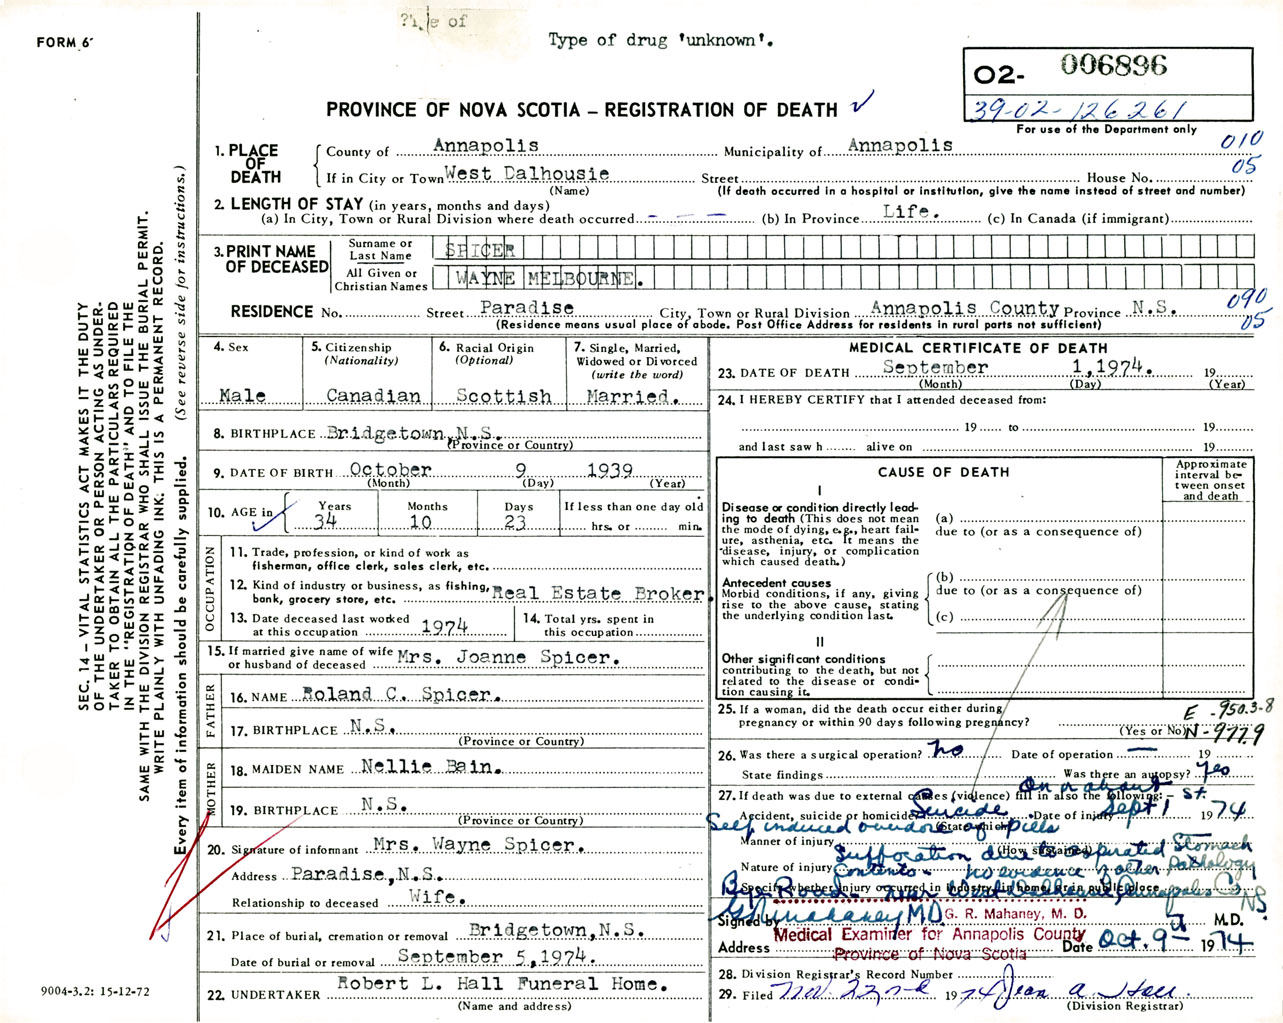 FORM 6
Type of drug 'unknown'.
O2- 006896
39-02-126261
For use of the Department only
PROVINCE OF NOVA SCOTIA – REGISTRATION OF DEATH
010
05
1. PLACE OF DEATH
County of Annapolis Municipality of Annapolis
If in City or Town West Dalhousie Street House No.
(Name) (If death occurred in a hospital or institution, give the name instead of street and number)
2. LENGTH OF STAY (in years, months and days)
(a) In City, Town or Rural Division where death occurred – – – (b) In Province Life. (c) In Canada (if immigrant)
3. PRINT NAME OF DECEASED
Surname or Last Name SPICER
All Given or Christian Names WAYNE MELBOURNE.
RESIDENCE No. Street Paradise City, Town or Rural Division Annapolis County Province N.S.
(Residence means usual place of abode. Post Office Address for residents in rural parts not sufficient)
090
05
4. Sex
Male
5. Citizenship
(Nationality)
Canadian
6. Racial Origin
(Optional)
Scottish
7. Single, Married,
Widowed or Divorced
(write the word)
Married.
8. BIRTHPLACE Bridgetown, N.S.
(Province or Country)
9. DATE OF BIRTH October 9 1939
(Month) (Day) (Year)
10. AGE in
Years Months Days If less than one day old
34 10 23 hrs. or min.
OCCUPATION
11. Trade, profession, or kind of work as
fisherman, office clerk, sales clerk, etc.
12. Kind of industry or business, as fishing,
bank, grocery store, etc. Real Estate Broker.
13. Date deceased last worked
at this occupation 1974
14. Total yrs. spent in
this occupation
15. If married give name of wife
or husband of deceased Mrs. Joanne Spicer.
FATHER
16. NAME Roland C. Spicer.
17. BIRTHPLACE N.S.
(Province or Country)
MOTHER
18. MAIDEN NAME Nellie Bain.
19. BIRTHPLACE N.S.
(Province or Country)
20. Signature of informant Mrs. Wayne Spicer.
Address Paradise, N.S.
Relationship to deceased Wife.
21. Place of burial, cremation or removal Bridgetown, N.S.
Date of burial or removal September 5, 1974.
22. UNDERTAKER Robert L. Hall Funeral Home.
(Name and address)
MEDICAL CERTIFICATE OF DEATH
23. DATE OF DEATH September 1, 1974. 19
(Month) (Day) (Year)
24. I HEREBY CERTIFY that I attended deceased from:
19 to 19
and last saw h alive on 19
CAUSE OF DEATH
Approximate
interval be-
tween onset
and death
I
Disease or condition directly lead-
ing to death (This does not mean
the mode of dying, e.g., heart fail-
ure, asthenia, etc. It means the
disease, injury, or complication
which caused death.)
(a)
due to (or as a consequence of)
Antecedent causes
Morbid conditions, if any, giving
rise to the above cause, stating
the underlying condition last.
(b)
due to (or as a consequence of)
(c)
II
Other significant conditions
contributing to the death, but not
related to the disease or condi-
tion causing it.
25. If a woman, did the death occur either during
pregnancy or within 90 days following pregnancy?
(Yes or No)
E - 950.3-8
N-977.9
26. Was there a surgical operation? no Date of operation — 19
State findings Was there an autopsy? Yes
27. If death was due to external causes (violence) fill in also the following:–
On or about
Accident, suicide or homicide? Suicide Date of injury Sept 1 st. 1974
(State which)
Self induced overdose of pills
Manner of injury
(How sustained)
Nature of injury Suffocation due to aspirated Stomach
Contents - no evidence of other Pathology
Specify whether injury occurred in industry, in home, or in public place
Bye Road. near West Dalhousie, Annapolis Co. NS.
Signed by G R Mahaney MD. G. R. Mahaney, M. D. M.D.
Medical Examiner for Annapolis County
Province of Nova Scotia
Address Date Oct. 9th 1974
28. Division Registrar's Record Number
29. Filed Nov. 22nd 1974 Jean A. Hall.
(Division Registrar)
SEC. 14 – VITAL STATISTICS ACT MAKES IT THE DUTY
OF THE UNDERTAKER OR PERSON ACTING AS UNDER-
TAKER TO OBTAIN ALL THE PARTICULARS REQUIRED
IN THE "REGISTRATION OF DEATH" AND TO FILE THE
SAME WITH THE DIVISION REGISTRAR WHO SHALL ISSUE THE BURIAL PERMIT.
WRITE PLAINLY WITH UNFADING INK. THIS IS A PERMANENT RECORD.
Every item of information should be carefully supplied. (See reverse side for instructions.)
9004-3.2: 15-12-72